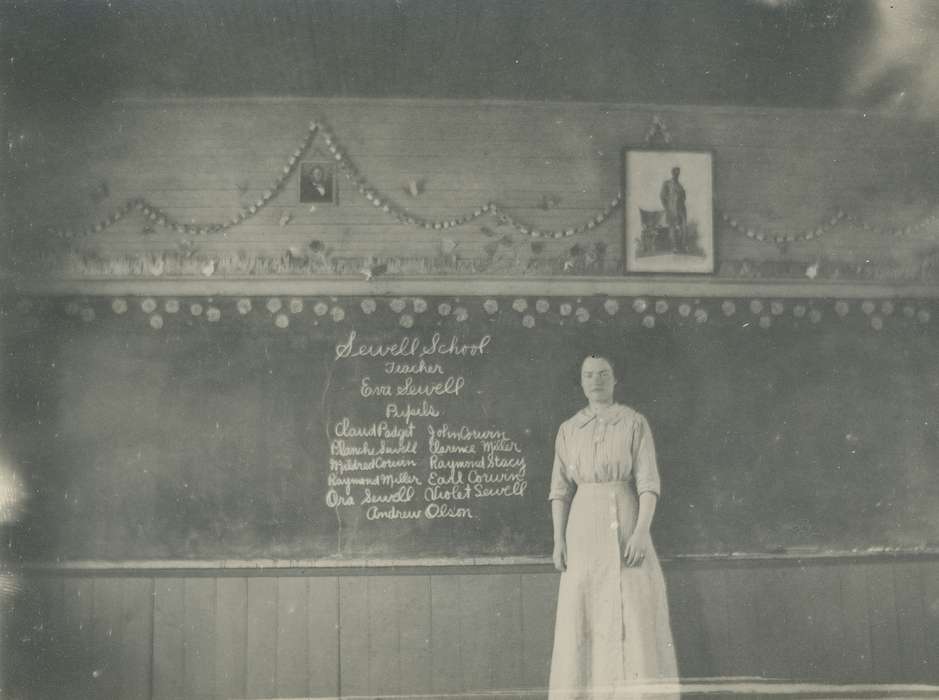 Sewell School
Teacher
Eva Sewell
Pupils
Claud Padget John Corwin
Blanche Sewell Clarence Miller
Mildred Corwin Raymond Stacy
Raymond Miller Earl Corwin
Ora Sewell Violet Sewell
Andrew Olson